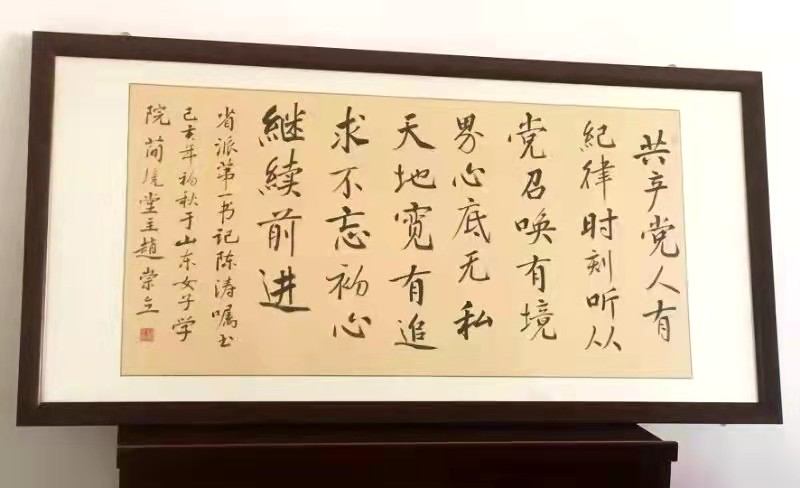 共产党人有
纪律时刻听从
党召唤有境
界心底无私
天地宽有追
求不忘初心
继续前进
省派第一书记陈涛嘱书
己亥年初秋于山东女子学
院简境堂主赵崇立